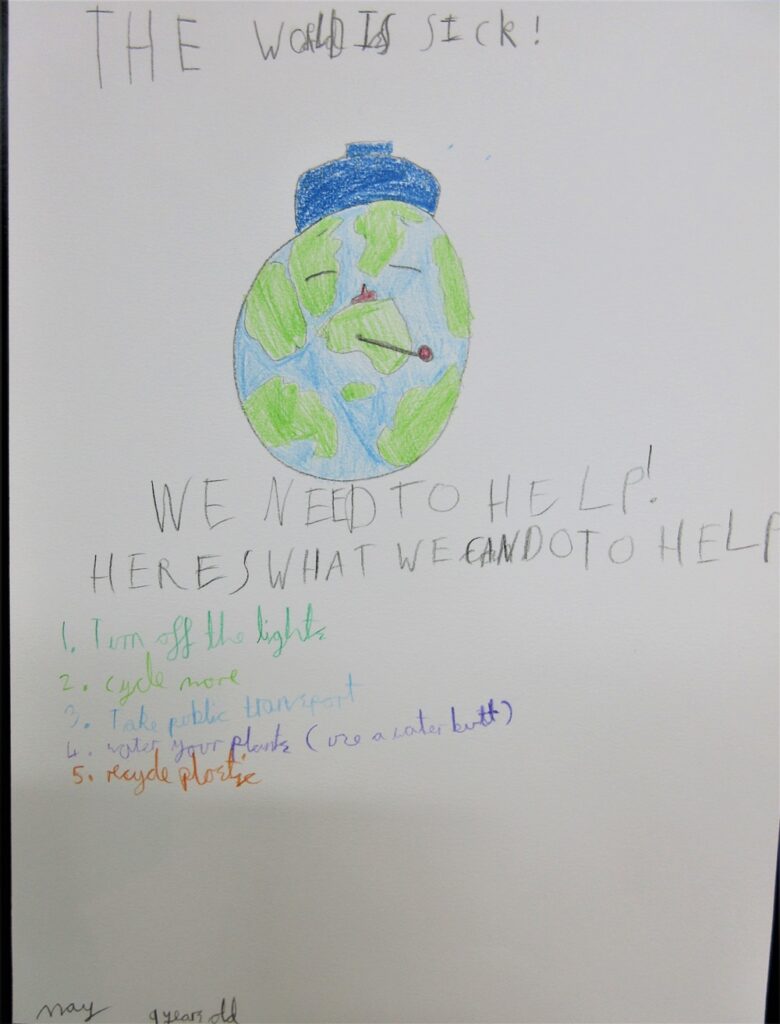 THE WORLD IS SICK!
WE NEED TO HELP!
HERES WHAT WE CAN DO TO HELP
1. Turn off the lights
2. cycle more
3. Take public transport
4. water your plants (use a water butt)
5. recycle plastic
may 9 years old